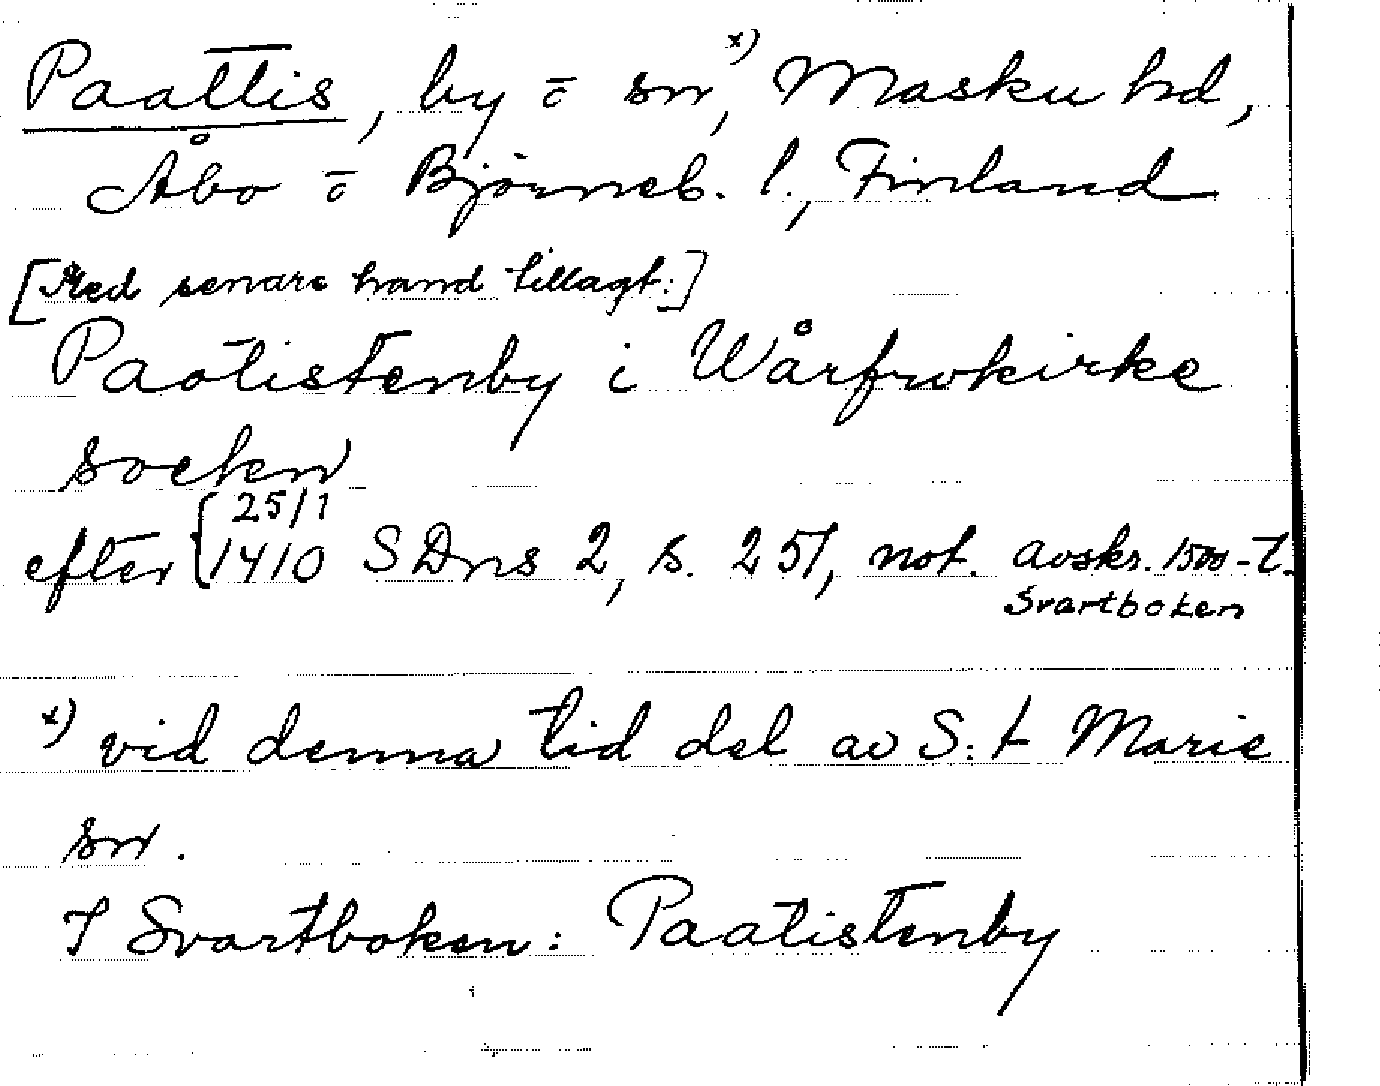 Paattis, by o sn,x) Masku hd,
Åbo o Björneb. l., Finland
[Med senare hand tillagt:]
Paotistenby i Wårfrwkirke
sockn
efter {25/1
1410 SDns 2, s. 251, not. avskr. 1500-t.
Svartboken
x) vid denna tid del av S:t Marie
sn.
I Svartboken: Paatistenby